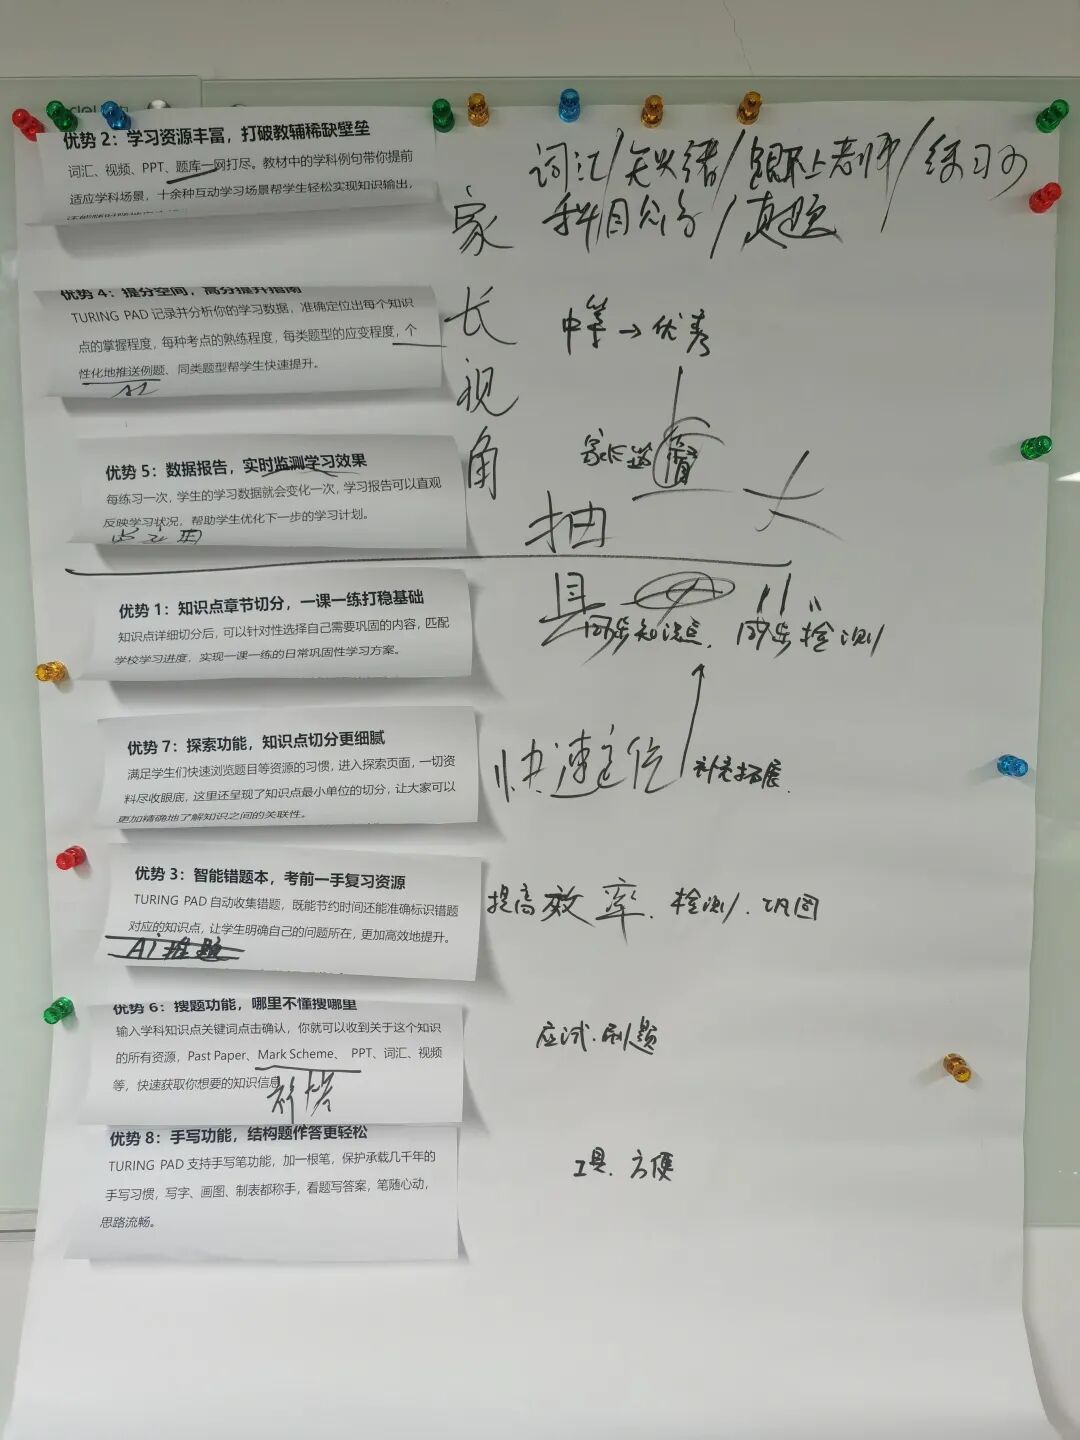 优势 2：学习资源丰富，打破教辅稀缺壁垒
词汇、视频、PPT、题库一网打尽。教材中的学科例句带你提前
适应学科场景，十余种互动学习场景帮学生轻松实现知识输出，
词汇/无头绪/跟不上老师/练习少
科目 /真题
家长视角
优势 4：提分空间，高分提升指南
TURING PAD 记录并分析你的学习数据，准确定位出每个知识
点的掌握程度，每种考点的熟练程度，每类题型的应变程度，个
性化地推送例题、同类题型帮学生快速提升。
AI
中等→优秀
优势 5：数据报告，实时监测学习效果
每练习一次，学生的学习数据就会变化一次，学习报告可以直观
反映学习状况，帮助学生优化下一步的学习计划。
抽 大
优势 1：知识点章节切分，一课一练打稳基础
知识点详细切分后，可以针对性选择自己需要巩固的内容，匹配
学校学习进度，实现一课一练的日常巩固性学习方案。
具
同步知识点. 同步检测
优势 7：探索功能，知识点切分更细腻
满足学生们快速浏览题目等资源的习惯，进入探索页面，一切资
料尽收眼底，这里还呈现了知识点最小单位的切分，让大家可以
更加精确地了解知识之间的关联性。
快速定位
补充拓展.
优势 3：智能错题本，考前一手复习资源
TURING PAD 自动收集错题，既能节约时间还能准确标识错题
对应的知识点，让学生明确自己的问题所在，更加高效地提升。
提高效率. 检测. 巩固
优势 6：搜题功能，哪里不懂搜哪里
输入学科知识点关键词点击确认，你就可以收到关于这个知识
的所有资源，Past Paper、Mark Scheme、 PPT、词汇、视频
等，快速获取你想要的知识信息
应试.刷题
优势 8：手写功能，结构题作答更轻松
TURING PAD 支持手写笔功能，加一根笔，保护承载几千年的
手写习惯，写字、画图、制表都称手，看题写答案，笔随心动，
思路流畅。
工具. 方便